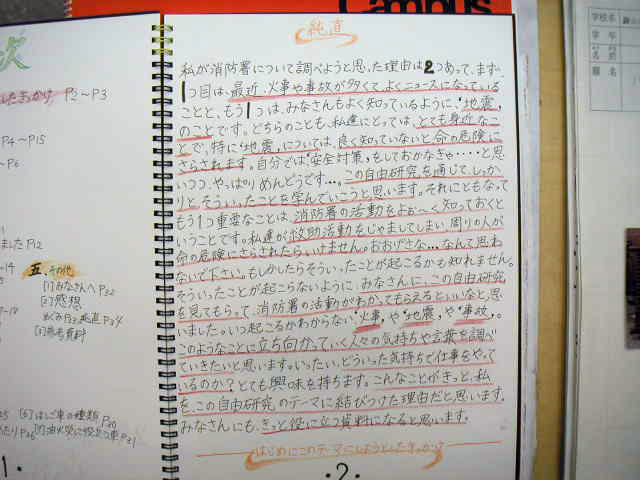 Campus
次
したきっかけ P2～P3
P4～P15
～P6
ました P12
～14
五、その他
[1]みなさんへ P22
[2]感想
めぐみP23、純直P24
[3]参考資料
[5]はしご車の種類 P20
P21
1.
純直
私が消防署について調べようと思った理由は2つあって、まず、
1つ目は、最近、火事や事故が多くてよくニュースになっている
ことと、もう1つは、みなさんもよく知っているように、"地震"
のことです。どちらのことも、私達にとっては、とても身近なこ
とで、特に"地震"については、良く知っていないと命の危険に
さらされます。自分では"安全対策"をしておかなきゃ・・・・と思
いつつ、やっぱりめんどうです…。この自由研究を通じてしっか
りと、そういったことを学んでいこうと思います。それにともなって
もう1つ重要なことは、消防署の活動をよぉ〜く知っておくと
いうことです。私達が救助活動をじゃましてしまい、周りの人が
命の危険にさらされたらいけません。おおげさな…なんて思わ
ないで下さい。もしかしたらそういったことが起こるかも知れません。
そういったことが起こらないように、みなさんに、この自由研究
を見てもらって、消防署の活動がわかってもらえるといいなと思
いました。いつ起こるかわからない"火事"や"地震"や"事故"。
このようなことに立ち向かっていく人々の気持ちや言葉を調べ
ていきたいと思います。いったい、どういった気持ちで仕事をやって
いるのか?とても興味を持ちます。こんなことがきっと、私
を、この自由研究のテーマに結びつけた理由だと思います。
みなさんにも、きっと役に立つ資料になると思います。
はじめにこのテーマにしようとしたきっかけ
・2・
学校名
学年
名前
題名